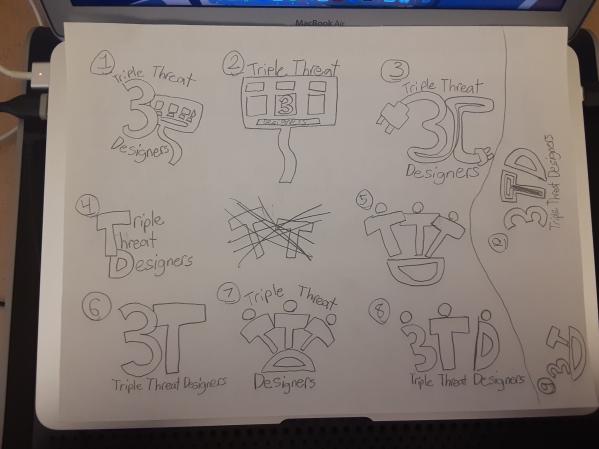 MacBook Air
1
Triple Threat
3
Designers
2
Triple Threat
3
Designers
3
Triple Threat
3
Designers
4
Triple
Threat
Designers
T T
5
TTT
D
6
3T
Triple Threat Designers
7
Triple Threat
TTT
Designers
8
3TD
Triple Threat Designers
3TD
Triple Threat Designers
9
3TD